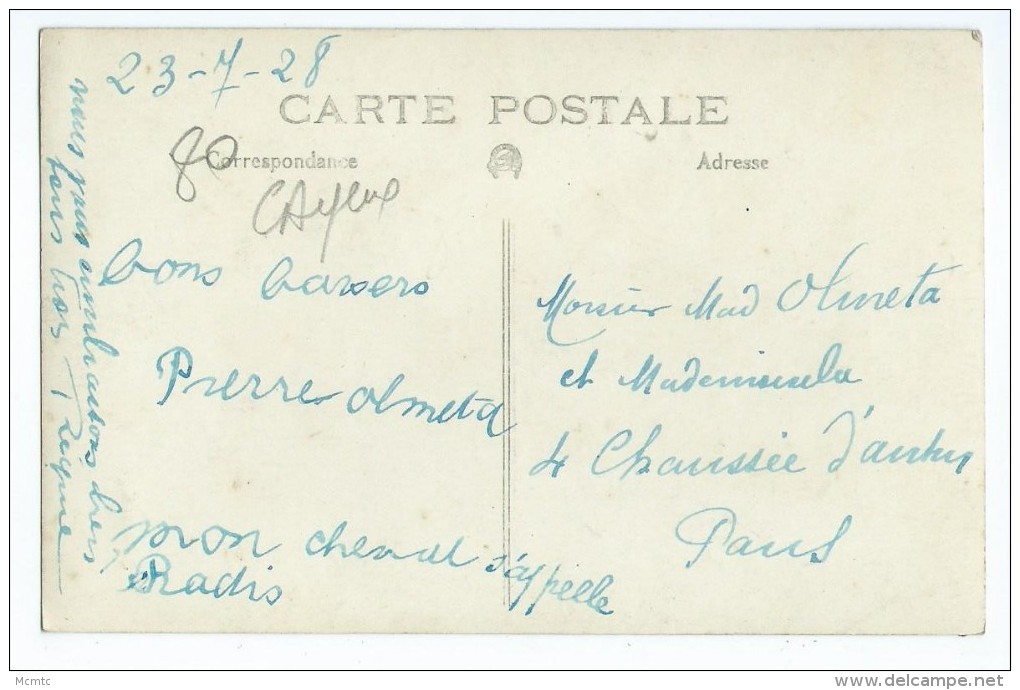 23-7-28
CARTE POSTALE
Correspondance
Adresse
80
CAyeux
bons baisers
Pierre Olmeta
mon cheval s'appelle
Radis
nous vous embrassons bien
tous trois
Monsieur Mad Olmeta
et Mademoiselle
4 Chaussée d'antin
Paris
Mcmtc
www.delcampe.net